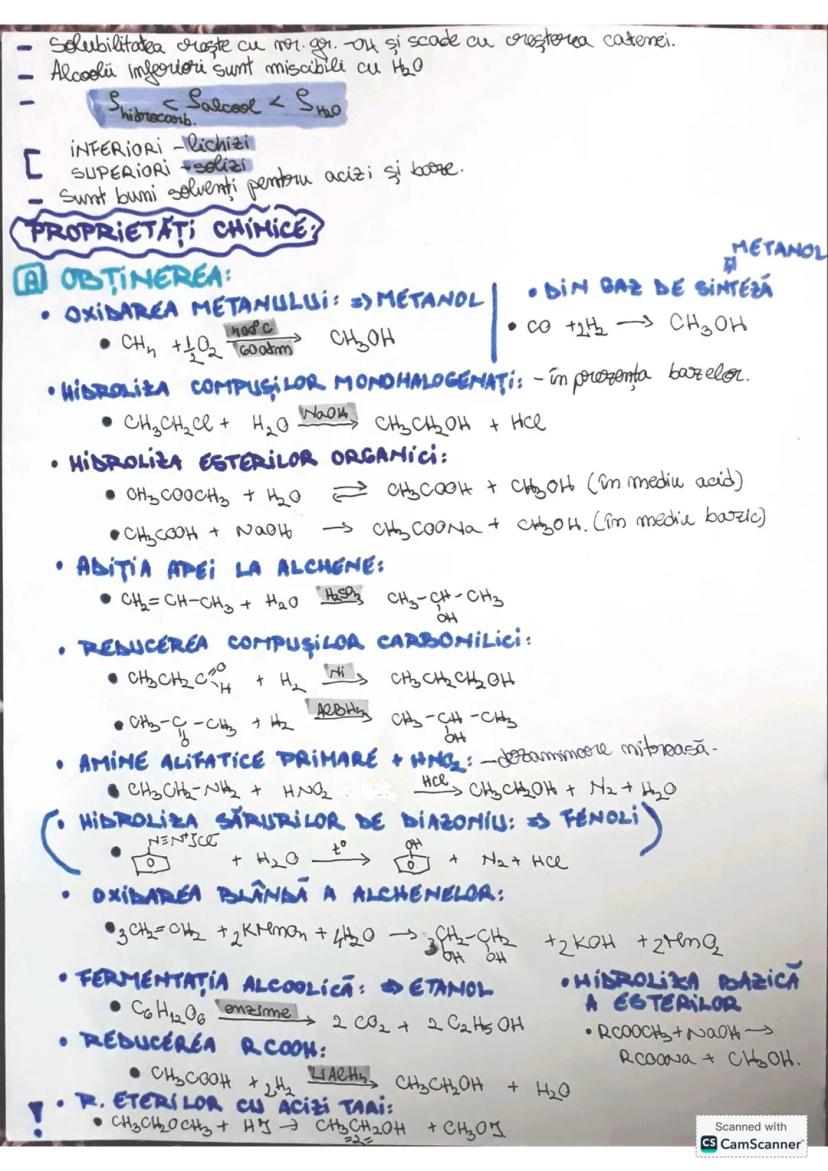 - Solubilitatea crește cu nr. gr. -OH și scade cu creșterea catenei.
- Alcoolii inferiori sunt miscibili cu H₂O
- ρhidrocarb. < ρalcool < ρH₂O
[ INFERIORI - lichizi
SUPERIORI - solizi
- Sunt buni solvenți pentru acizi și baze.
PROPRIETĂȚI CHIMICE:
A OBȚINEREA:
• OXIDAREA METANULUI: => METANOL
• CH₄ + 1/2 O₂ 400°C 60atm → CH₃OH
METANOL
• DIN GAZ DE SINTEZĂ
• CO + 2H₂ → CH₃OH
• HIDROLIZA COMPUȘILOR MONOHALOGENAȚI: - în prezența bazelor.
• CH₃CH₂Cl + H₂O NaOH → CH₃CH₂OH + HCl
• HIDROLIZA ESTERILOR ORGANICI:
• CH₃COOCH₃ + H₂O ⇌ CH₃COOH + CH₃OH (în mediu acid)
• CH₃COOH + NaOH → CH₃COONa + CH₃OH. (în mediu bazic)
• ADIȚIA APEI LA ALCHENE:
• CH₂=CH-CH₃ + H₂O H₂SO₄ → CH₃-CH-CH₃
OH
• REDUCEREA COMPUȘILOR CARBONILICI:
• CH₃CH₂C=O H + H₂ Ni → CH₃CH₂CH₂OH
• CH₃-C-CH₃ + H₂ → CH₃-CH-CH₃
O OH
• AMINE ALIFATICE PRIMARE + HNO₂: - dezaminare nitroasă.
• CH₃CH₂-NH₂ + HNO₂ HCl → CH₃CH₂OH + N₂ + H₂O
( • HIDROLIZA SĂRURILOR DE DIAZONIU: => FENOLI )
N≡N⁺]Cl⁻ OH
• + H₂O t° → + N₂ + HCl
• OXIDAREA BLÂNDĂ A ALCHENELOR:
• 3CH₂=CH₂ + 2KMnO₄ + 4H₂O → 3CH₂-CH₂ + 2KOH + 2MnO₂
OH OH
• FERMENTAȚIA ALCOOLICĂ: => ETANOL
• C₆H₁₂O₆ enzime → 2 CO₂ + 2 C₂H₅OH
• HIDROLIZA BAZICĂ
A ESTERILOR
• RCOOCH₃ + NaOH →
RCOONa + CH₃OH.
• REDUCEREA RCOOH:
• CH₃COOH + 2H₂ LiAlH₄ → CH₃CH₂OH + H₂O
! • R. ETERILOR CU ACIZI TARI:
• CH₃CH₂OCH₃ + HI → CH₃CH₂OH + CH₃OI
=2=
Scanned with
CS CamScanner